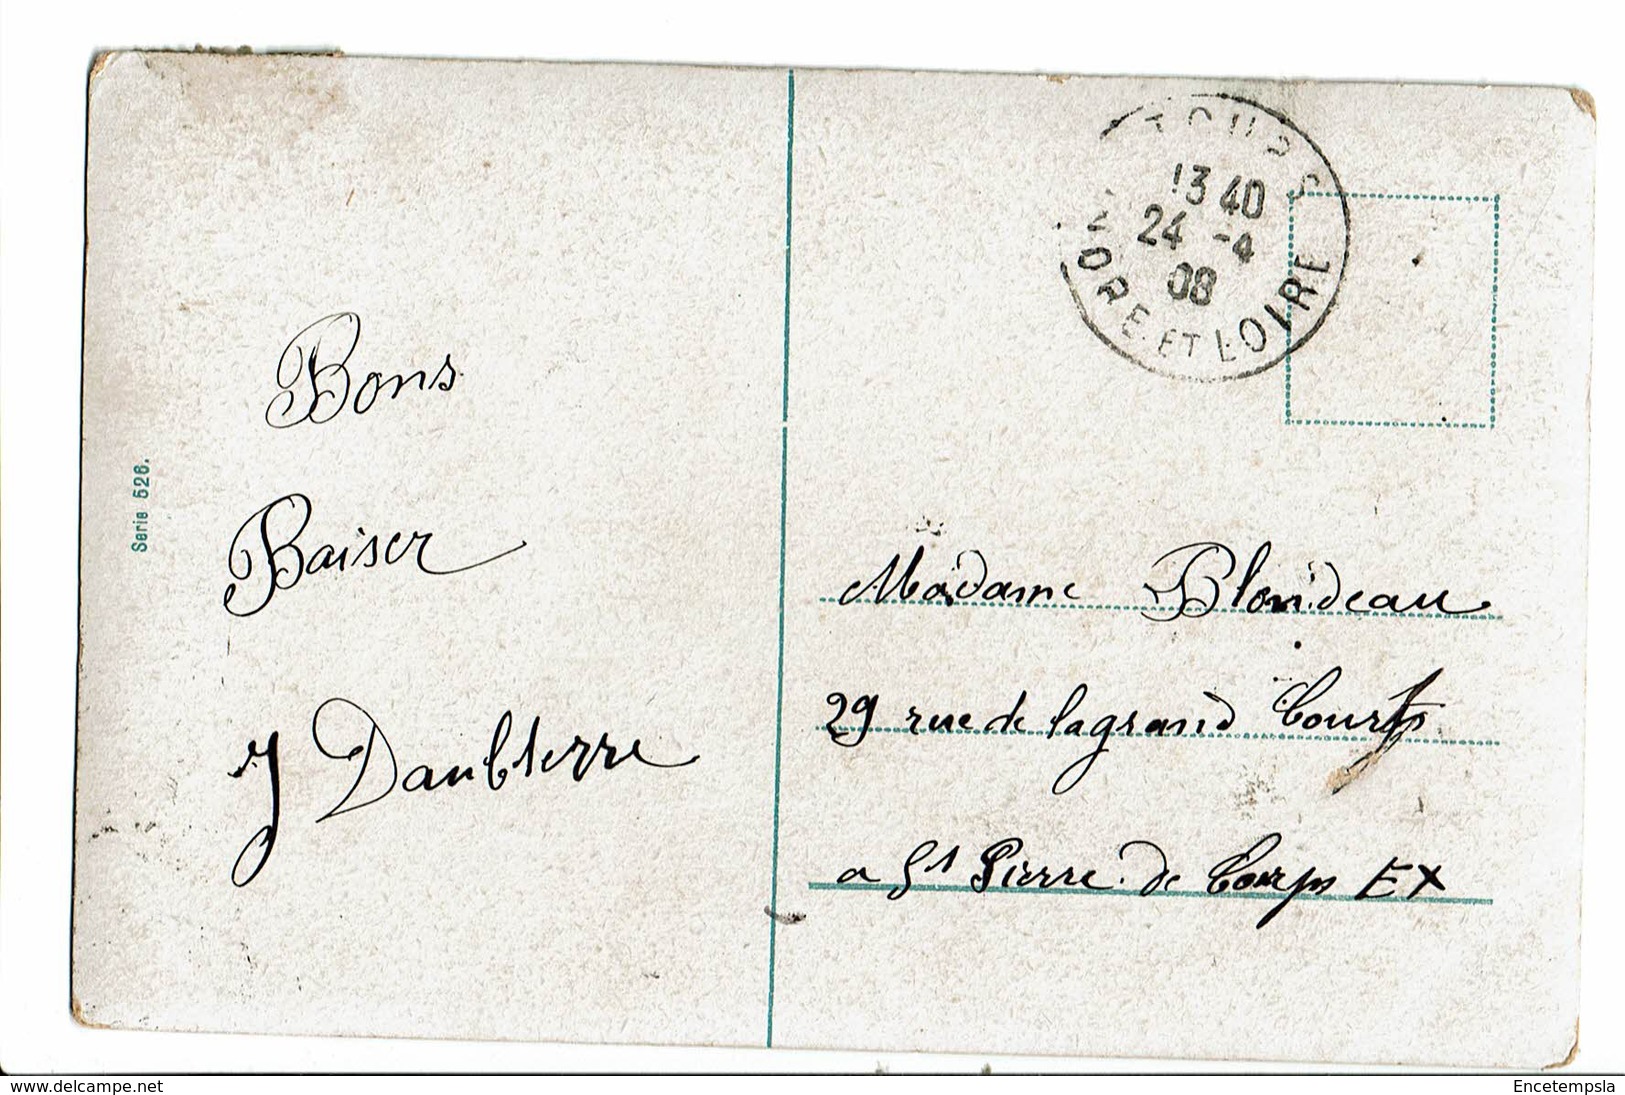 Bons
Baiser
J Daubterre
Serie 526.
TOURS
13 40
24 -4
08
INDRE. ET LOIRE
Madame Blondeau
29 rue de la grand Cour
a St Pierre de Corps Ex
CPA - Carte postale
Encetempsla